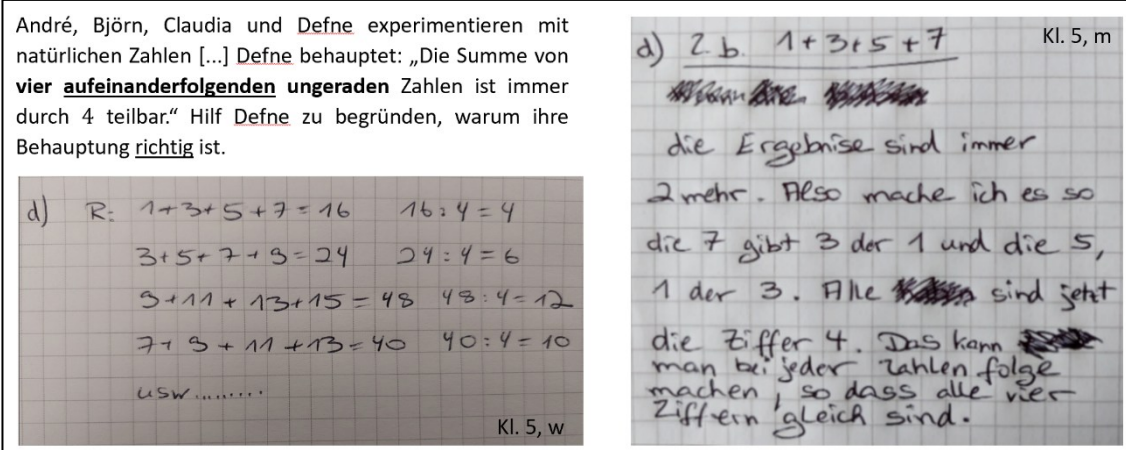 André, Björn, Claudia und Defne experimentieren mit
natürlichen Zahlen [...] Defne behauptet: „Die Summe von
vier aufeinanderfolgenden ungeraden Zahlen ist immer
durch 4 teilbar.“ Hilf Defne zu begründen, warum ihre
Behauptung richtig ist.
d) R: 1+3+5+7=16 16:4=4
3+5+7+9=24 24:4=6
9+11+13+15=48 48:4=12
7+9+11+13=40 40:4=10
usw.........
Kl. 5, w
d) z.b. 1+3+5+7
Kl. 5, m
die Ergebnise sind immer
2 mehr. Also mache ich es so
die 7 gibt 3 der 1 und die 5,
1 der 3. Alle sind jetzt
die Ziffer 4. Das kann
man bei jeder Zahlenfolge
machen, so dass alle vier
Ziffern gleich sind.